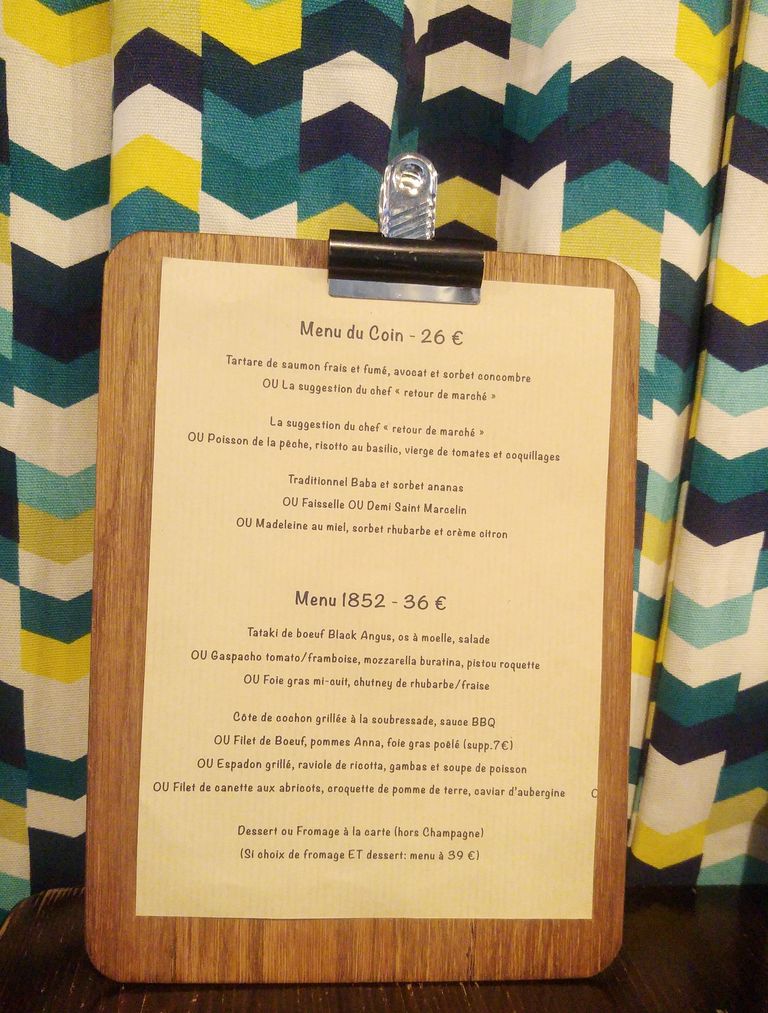 Menu du Coin - 26 €
Tartare de saumon frais et fumé, avocat et sorbet concombre
OU La suggestion du chef « retour de marché »
La suggestion du chef « retour de marché »
OU Poisson de la pêche, risotto au basilic, vierge de tomates et coquillages
Traditionnel Baba et sorbet ananas
OU Faisselle OU Demi Saint Marcelin
OU Madeleine au miel, sorbet rhubarbe et crème citron
Menu 1852 - 36 €
Tataki de boeuf Black Angus, os à moelle, salade
OU Gaspacho tomato/framboise, mozzarella buratina, pistou roquette
OU Foie gras mi-cuit, chutney de rhubarbe/fraise
Côte de cochon grillée à la soubressade, sauce BBQ
OU Filet de Boeuf, pommes Anna, foie gras poêlé (supp.7€)
OU Espadon grillé, raviole de ricotta, gambas et soupe de poisson
OU Filet de canette aux abricots, croquette de pomme de terre, caviar d'aubergine
Dessert ou Fromage à la carte (hors Champagne)
(Si choix de fromage ET dessert: menu à 39 €)